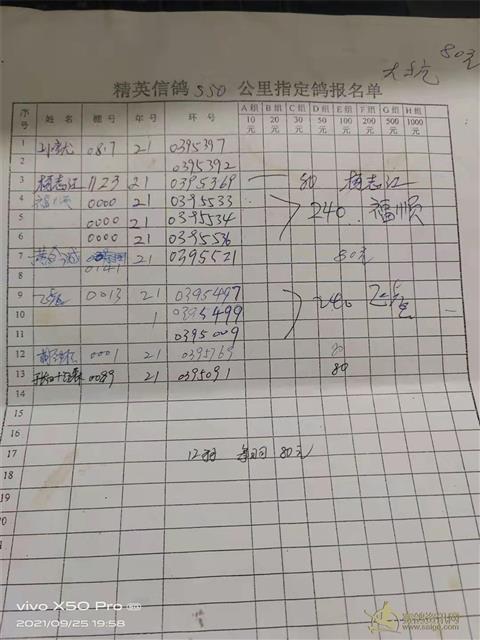 80元
精英信鸽550公里指定鸽报名单
序号 姓名 棚号 年号 环号 A组10元 B组20元 C组30元 D组50元 E组100元 F组200元 G组500元 H组1000元
1 0817 21 0395397
2 0395392
3 杨志江 1123 21 0395369 80 杨志江
4 福顺 0000 21 0395533
5 0000 21 0395534 240 福顺
6 0000 21 0395536
7 21 0395521 80元
8 0141
9 0013 21 0395497 240
10 1 0395499
11 0395009
12 0001 21 0395769 80
13 0089 21 0395091 80
14
15
16
17 12羽 每羽 80元
18
19
vivo X50 Pro 5G
2021/09/25 19:58
赛鸽资讯网
www.saige.com